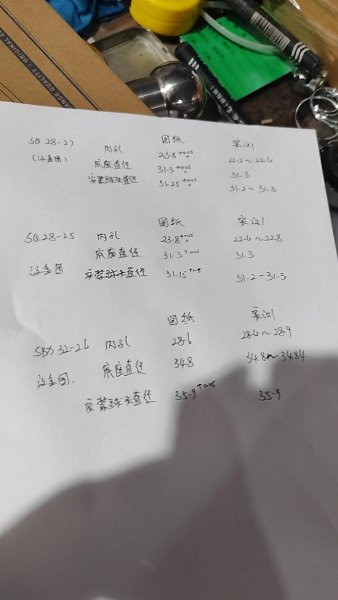 图纸 实测
SQ28-27 内孔 23.8 +0.05 0 22.2~22.6
底座直径 31.3 +0.05 31.3
安装球头直径 31.25 +0.05 31.2~31.3
图纸 实测
SQ28-25 内孔 23.8 +0.05 0 22.6~22.8
底座直径 31.3 +0.05 31.3
安装球头直径 31.15 31.2-31.3
图纸 实测
32-26 内孔 28.6 28.6~28.9
底座直径 34.8 34.8~34.84
安装球头直径 35.9 +0.05 35.9